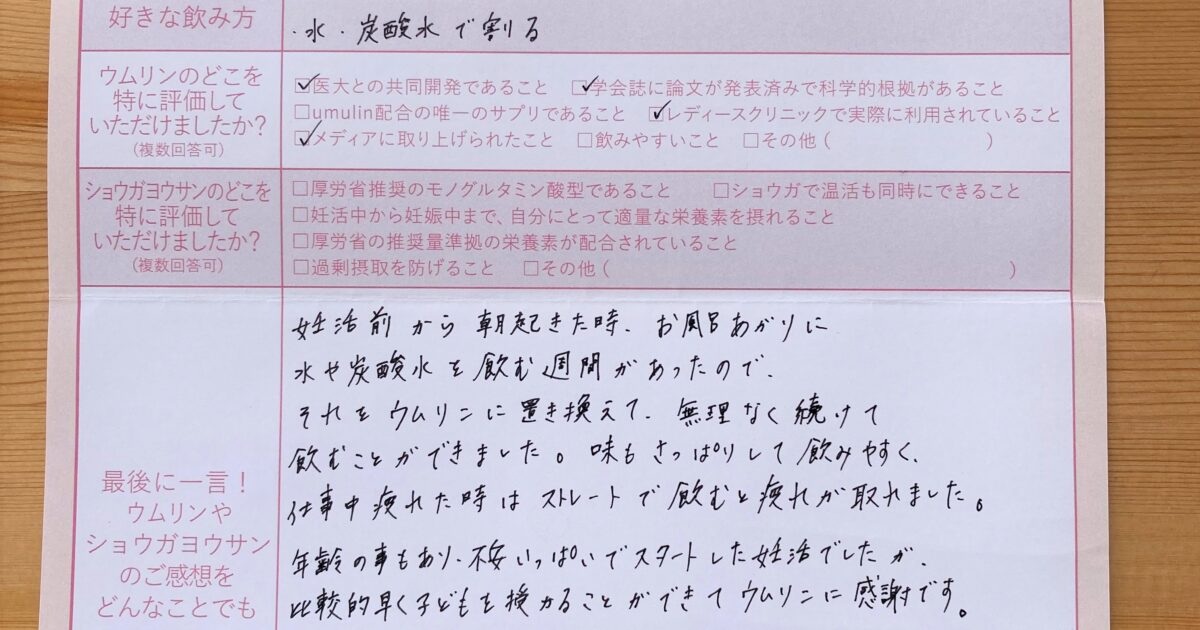 好きな飲み方
・水・炭酸水で割る
ウムリンのどこを
特に評価して
いただけましたか?
(複数回答可)
☑医大との共同開発であること ☑学会誌に論文が発表済みで科学的根拠があること
□umulin配合の唯一のサプリであること ☑レディースクリニックで実際に利用されていること
☑メディアに取り上げられたこと □飲みやすいこと □その他( )
ショウガヨウサンのどこを
特に評価して
いただけましたか?
(複数回答可)
□厚労省推奨のモノグルタミン酸型であること □ショウガで温活も同時にできること
□妊活中から妊娠中まで、自分にとって適量な栄養素を摂れること
□厚労省の推奨量準拠の栄養素が配合されていること
□過剰摂取を防げること □その他( )
最後に一言!
ウムリンや
ショウガヨウサン
のご感想を
どんなことでも
妊活前から朝起きた時、お風呂あがりに
水や炭酸水を飲む週間があったので、
それをウムリンに置き換えて、無理なく続けて
飲むことができました。味もさっぱりして飲みやすく、
仕事中疲れた時はストレートで飲むと疲れが取れました。
年齢の事もあり、不安いっぱいでスタートした妊活でしたが、
比較的早く子どもを授かることができてウムリンに感謝です。